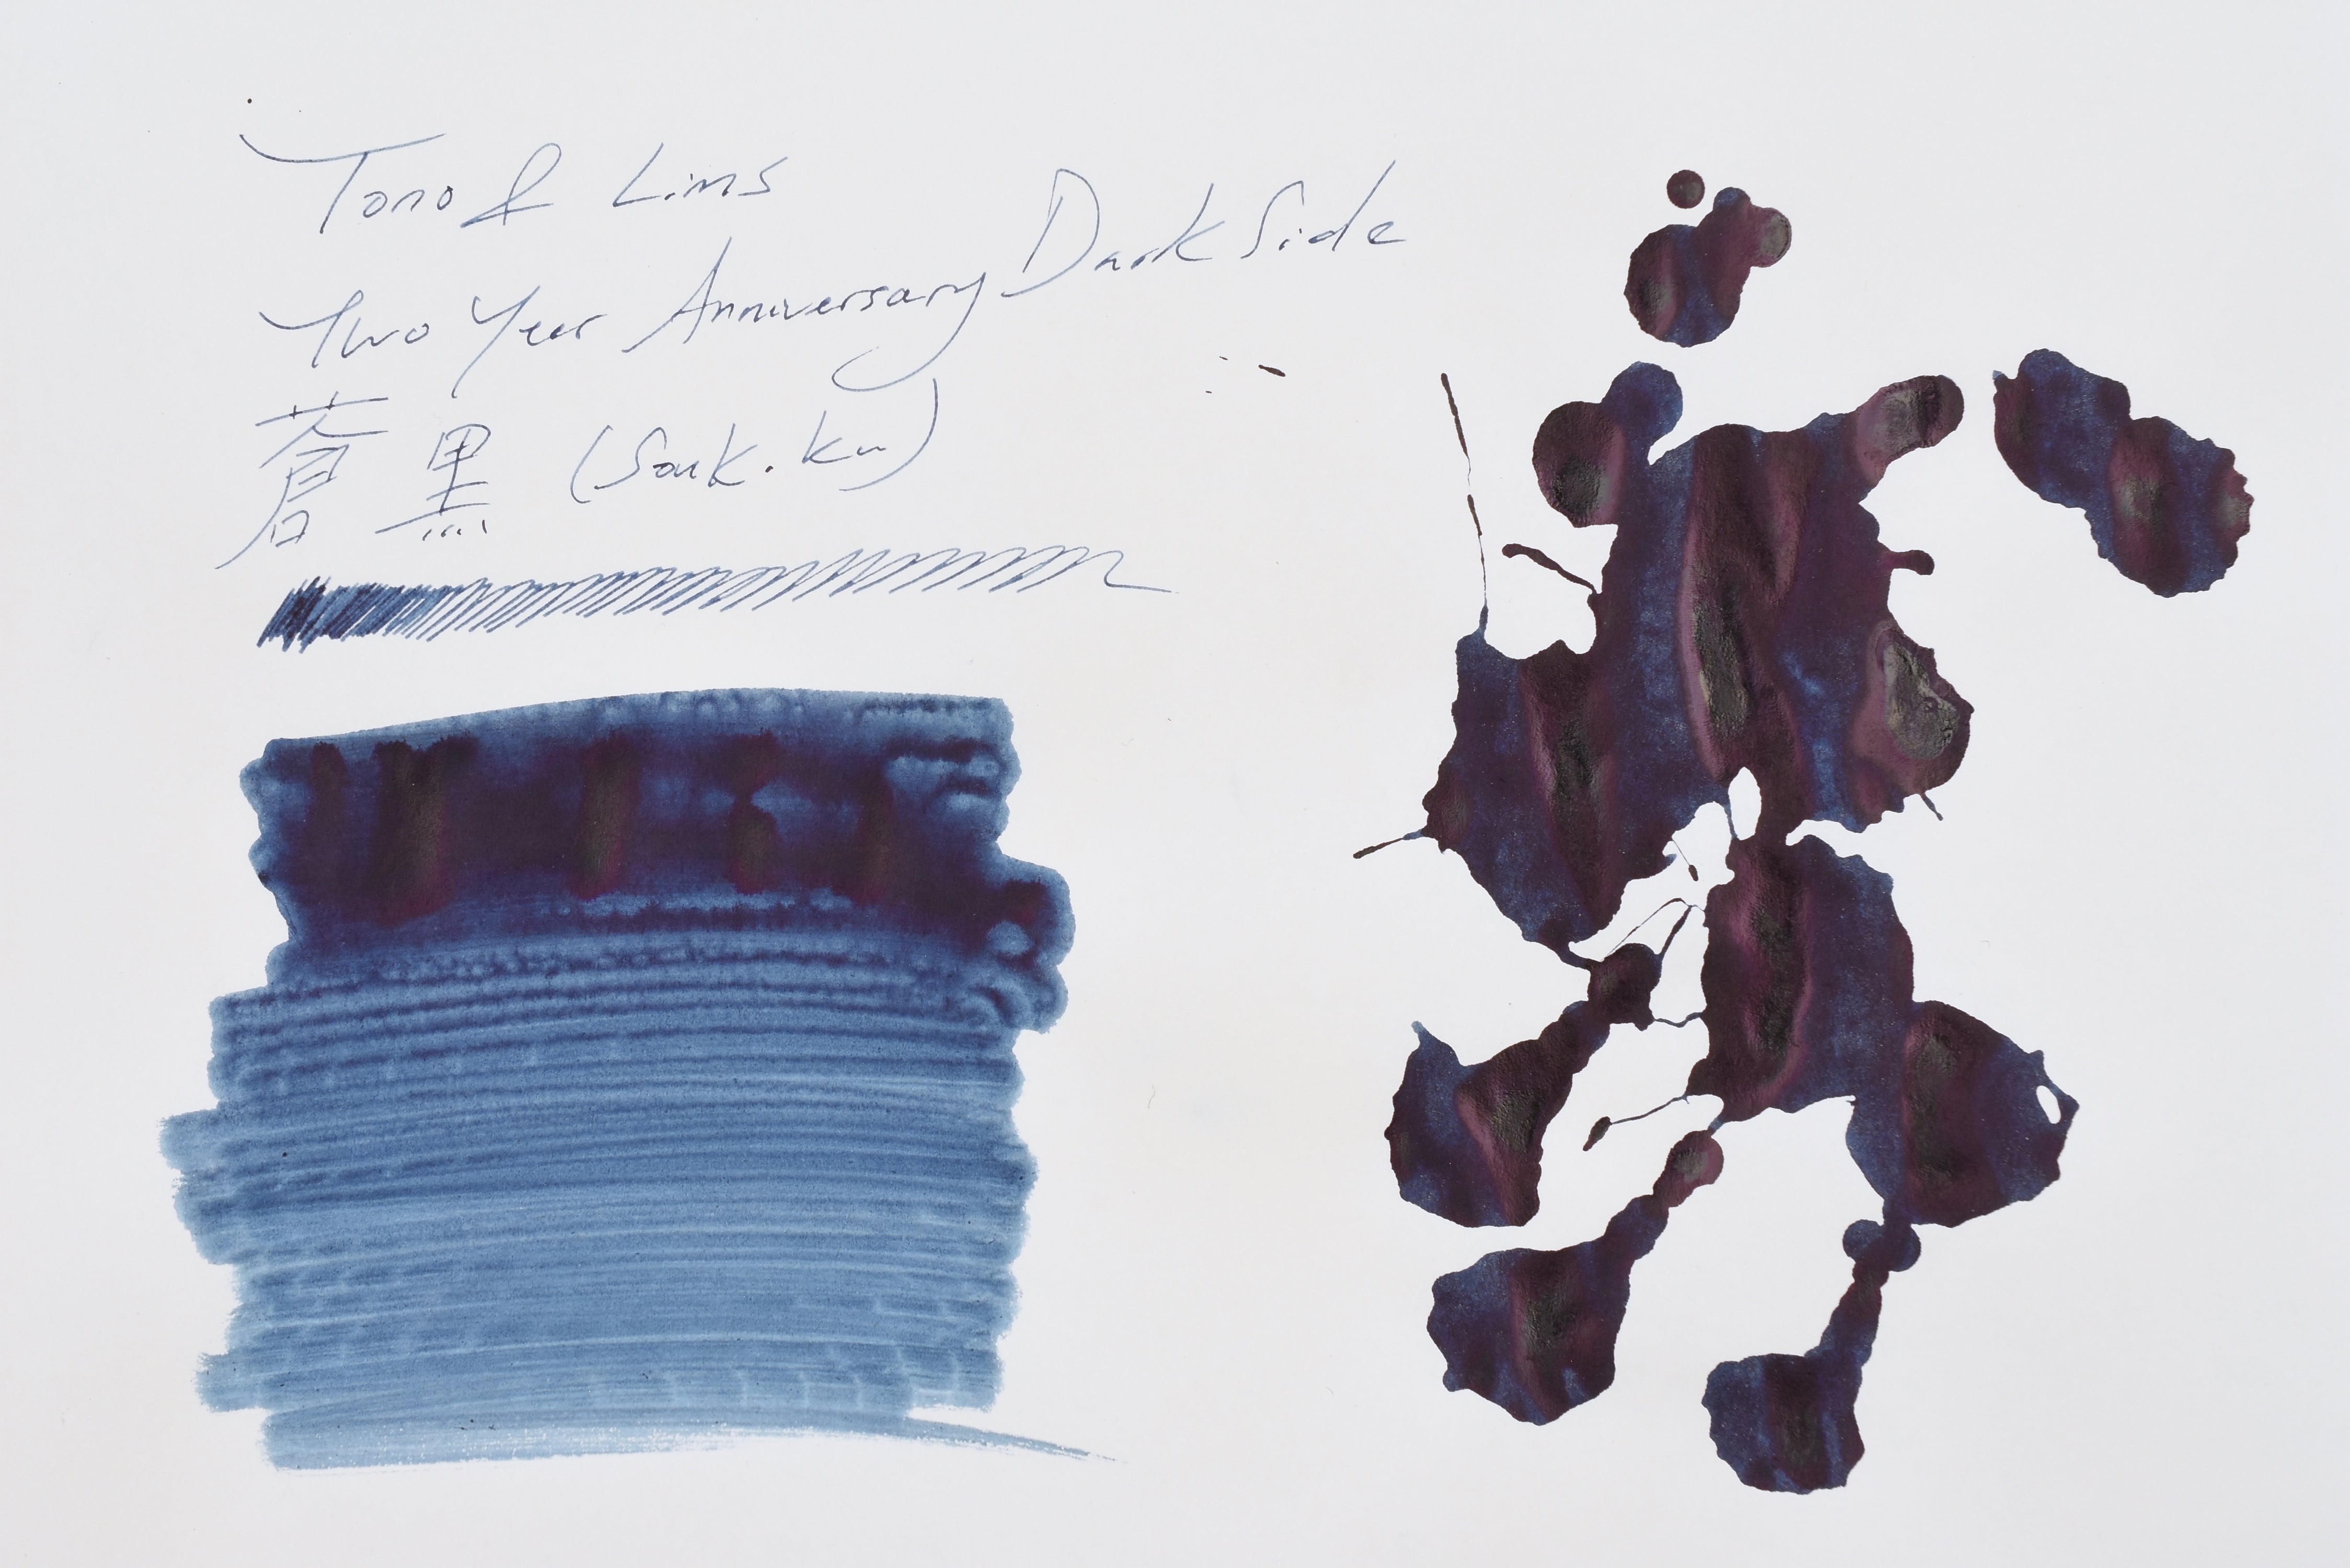 Tono & Lims
Two Year Anniversary Dark Side
蒼黒 (Souk.ku)